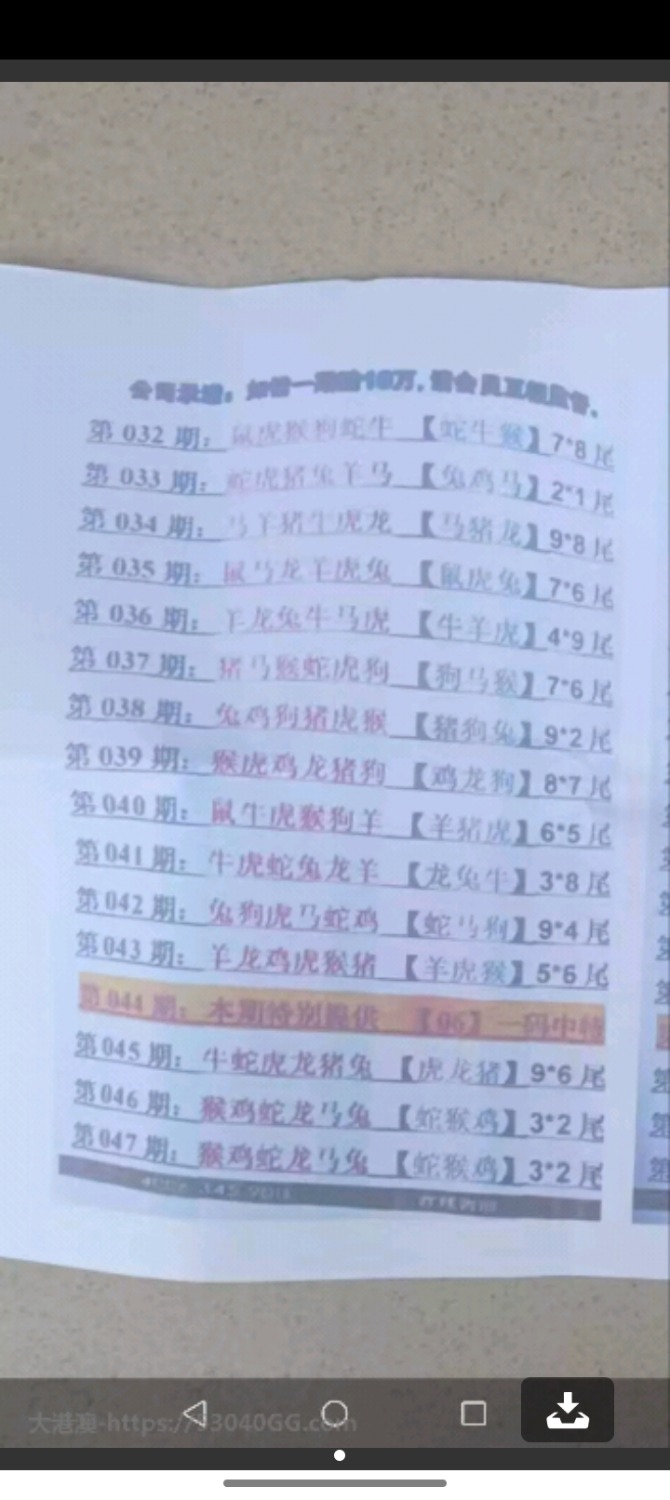 公司承诺：如错一期赔10万，请会员互相监督。
第 032 期： 鼠虎猴狗蛇牛 【蛇牛猴】7*8 尾
第 033 期： 蛇虎猪兔羊马 【兔鸡马】2*1 尾
第 034 期： 马羊猪牛虎龙 【马猪龙】9*8 尾
第 035 期： 鼠马龙羊虎兔 【鼠虎兔】7*6 尾
第 036 期： 羊龙兔牛马虎 【牛羊虎】4*9 尾
第 037 期： 猪马猴蛇虎狗 【狗马猴】7*6 尾
第 038 期： 兔鸡狗猪虎猴 【猪狗兔】9*2 尾
第 039 期： 猴虎鸡龙猪狗 【鸡龙狗】8*7 尾
第 040 期： 鼠牛虎猴狗羊 【羊猪虎】6*5 尾
第 041 期： 牛虎蛇兔龙羊 【龙兔牛】3*8 尾
第 042 期： 兔狗虎马蛇鸡 【蛇马狗】9*4 尾
第 043 期： 羊龙鸡虎猴猪 【羊虎猴】5*6 尾
第 044 期： 本期特别提供 【06】 一码中特
第 045 期： 牛蛇虎龙猪兔 【虎龙猪】9*6 尾
第 046 期： 猴鸡蛇龙马兔 【蛇猴鸡】3*2 尾
第 047 期： 猴鸡蛇龙马兔 【蛇猴鸡】3*2 尾
大港澳-https://33040GG.com